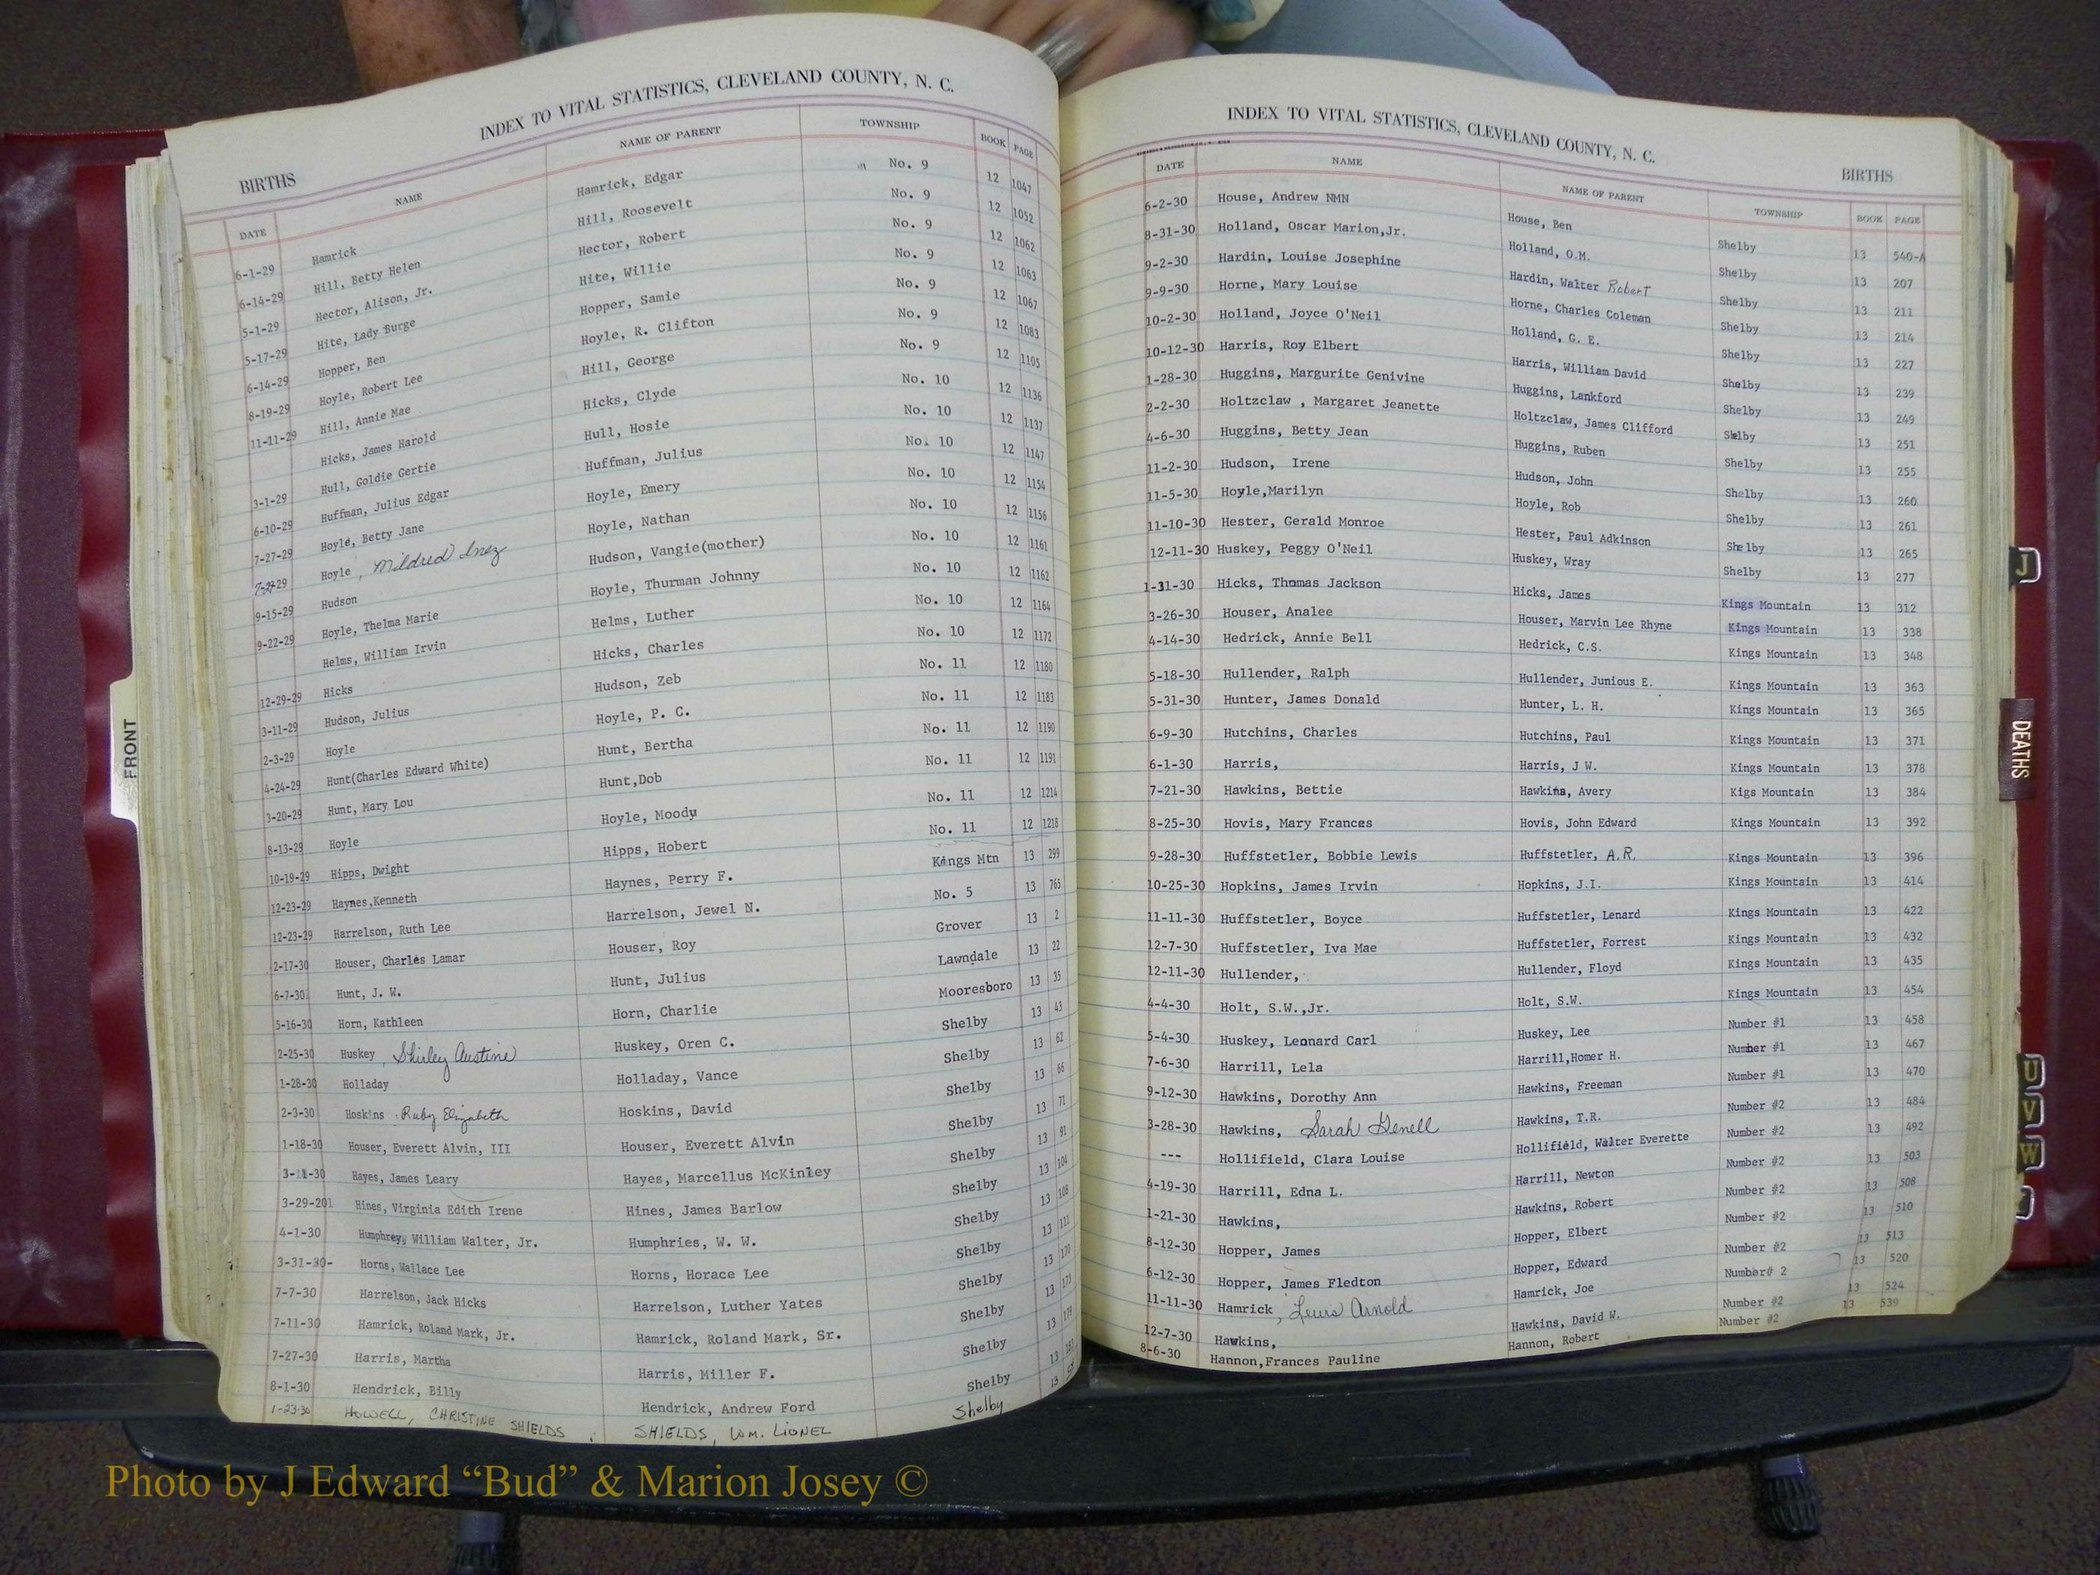 INDEX TO VITAL STATISTICS, CLEVELAND COUNTY, N. C.
BIRTHS
DATE NAME NAME OF PARENT TOWNSHIP BOOK PAGE
6-1-29 Hamrick Hamrick, Edgar No. 9 12 1047
6-14-29 Hill, Betty Helen Hill, Roosevelt No. 9 12 1052
5-1-29 Hector, Alison, Jr. Hector, Robert No. 9 12 1062
5-17-29 Hite, Lady Burge Hite, Willie No. 9 12 1063
6-14-29 Hopper, Ben Hopper, Samie No. 9 12 1067
8-19-29 Hoyle, Robert Lee Hoyle, R. Clifton No. 9 12 1083
11-11-29 Hill, Annie Mae Hill, George No. 9 12 1105
Hicks, James Harold Hicks, Clyde No. 10 12 1136
3-1-29 Hull, Goldie Gertie Hull, Hosie No. 10 12 1137
6-10-29 Huffman, Julius Edgar Huffman, Julius No. 10 12 1147
7-27-29 Hoyle, Betty Jane Hoyle, Emery No. 10 12 1154
7-27-29 Hoyle, Mildred Inez Hoyle, Nathan No. 10 12 1156
9-15-29 Hudson Hudson, Vangie(mother) No. 10 12 1161
9-22-29 Hoyle, Thelma Marie Hoyle, Thurman Johnny No. 10 12 1162
Helms, William Irvin Helms, Luther No. 10 12 1164
12-29-29 Hicks Hicks, Charles No. 10 12 1172
3-11-29 Hudson, Julius Hudson, Zeb No. 11 12 1180
2-3-29 Hoyle Hoyle, P. C. No. 11 12 1183
4-24-29 Hunt(Charles Edward White) Hunt, Bertha No. 11 12 1190
3-20-29 Hunt, Mary Lou Hunt,Dob No. 11 12 1191
8-13-29 Hoyle Hoyle, Moody No. 11 12 1214
10-19-29 Hipps, Dwight Hipps, Hobert No. 11 12 1218
12-23-29 Haynes,Kenneth Haynes, Perry F. Kings Mtn 13 299
12-23-29 Harrelson, Ruth Lee Harrelson, Jewel N. No. 5 13 765
2-17-30 Houser, Charles Lamar Houser, Roy Grover 13 2
6-7-30 Hunt, J. W. Hunt, Julius Lawndale 13 22
5-16-30 Horn, Kathleen Horn, Charlie Mooresboro 13 35
2-25-30 Huskey, Shirley Austine Huskey, Oren C. Shelby 13 43
1-28-30 Holladay Holladay, Vance Shelby 13 62
2-3-30 Hoskins Ruby Elizabeth Hoskins, David Shelby 13 66
1-18-30 Houser, Everett Alvin, III Houser, Everett Alvin Shelby 13 71
3-11-30 Hayes, James Leary Hayes, Marcellus McKinley Shelby 13 91
3-29-201 Hines, Virginia Edith Irene Hines, James Barlow Shelby 13 104
4-1-30 Humphrey, William Walter, Jr. Humphries, W. W. Shelby 13 108
3-31-30- Horns, Wallace Lee Horns, Horace Lee Shelby 13 111
7-7-30 Harrelson, Jack Hicks Harrelson, Luther Yates Shelby 13 170
7-11-30 Hamrick, Roland Mark, Jr. Hamrick, Roland Mark, Sr. Shelby 13 173
7-27-30 Harris, Martha Harris, Miller F. Shelby 13 179
8-1-30 Hendrick, Billy Hendrick, Andrew Ford Shelby 13 187
1-23-30 HOWELL, CHRISTINE SHIELDS SHIELDS, WM. LIONEL Shelby 13
FRONT
INDEX TO VITAL STATISTICS, CLEVELAND COUNTY, N. C.
BIRTHS
DATE NAME NAME OF PARENT TOWNSHIP BOOK PAGE
6-2-30 House, Andrew NMN House, Ben Shelby 13 540-A
8-31-30 Holland, Oscar Marion,Jr. Holland, O.M. Shelby 13 207
9-2-30 Hardin, Louise Josephine Hardin, Walter Robert Shelby 13 211
9-9-30 Horne, Mary Louise Horne, Charles Coleman Shelby 13 214
10-2-30 Holland, Joyce O'Neil Holland, G. E. Shelby 13 227
10-12-30 Harris, Roy Elbert Harris, William David Shelby 13 239
1-28-30 Huggins, Margurite Genivine Huggins, Lankford Shelby 13 249
2-2-30 Holtzclaw , Margaret Jeanette Holtzclaw, James Clifford Shelby 13 251
4-6-30 Huggins, Betty Jean Huggins, Ruben Shelby 13 255
11-2-30 Hudson, Irene Hudson, John Shelby 13 260
11-5-30 Hoyle,Marilyn Hoyle, Rob Shelby 13 261
11-10-30 Hester, Gerald Monroe Hester, Paul Adkinson Shelby 13 265
12-11-30 Huskey, Peggy O'Neil Huskey, Wray Shelby 13 277
1-31-30 Hicks, Thomas Jackson Hicks, James Kings Mountain 13 312
3-26-30 Houser, Analee Houser, Marvin Lee Rhyne Kings Mountain 13 338
4-14-30 Hedrick, Annie Bell Hedrick, C.S. Kings Mountain 13 348
5-18-30 Hullender, Ralph Hullender, Junious E. Kings Mountain 13 363
5-31-30 Hunter, James Donald Hunter, L. H. Kings Mountain 13 365
6-9-30 Hutchins, Charles Hutchins, Paul Kings Mountain 13 371
6-1-30 Harris, Harris, J W. Kings Mountain 13 378
7-21-30 Hawkins, Bettie Hawkins, Avery Kigs Mountain 13 384
8-25-30 Hovis, Mary Frances Hovis, John Edward Kings Mountain 13 392
9-28-30 Huffstetler, Bobbie Lewis Huffstetler, A.R. Kings Mountain 13 396
10-25-30 Hopkins, James Irvin Hopkins, J.I. Kings Mountain 13 414
11-11-30 Huffstetler, Boyce Huffstetler, Lenard Kings Mountain 13 422
12-7-30 Huffstetler, Iva Mae Huffstetler, Forrest Kings Mountain 13 432
12-11-30 Hullender, Hullender, Floyd Kings Mountain 13 435
4-4-30 Holt, S.W.,Jr. Holt, S.W. Kings Mountain 13 454
5-4-30 Huskey, Leonard Carl Huskey, Lee Number #1 13 458
7-6-30 Harrill, Lela Harrill,Homer H. Number #1 13 467
9-12-30 Hawkins, Dorothy Ann Hawkins, Freeman Number #1 13 470
3-28-30 Hawkins, Sarah Genell Hawkins, T.R. Number #2 13 484
--- Hollifield, Clara Louise Hollifield, Walter Everette Number #2 13 492
4-19-30 Harrill, Edna L. Harrill, Newton Number #2 13 503
1-21-30 Hawkins, Hawkins, Robert Number #2 13 508
8-12-30 Hopper, James Hopper, Elbert Number #2 13 510
6-12-30 Hopper, James Fledton Hopper, Edward Number #2 13 513
11-11-30 Hamrick, Lewis Arnold Hamrick, Joe Number# 2 13 520
12-7-30 Hawkins, Hawkins, David W. Number #2 13 524
8-6-30 Hannon,Frances Pauline Hannon, Robert Number #2 13 539
J
DEATHS
U
V
W
Photo by J Edward “Bud” & Marion Josey ©